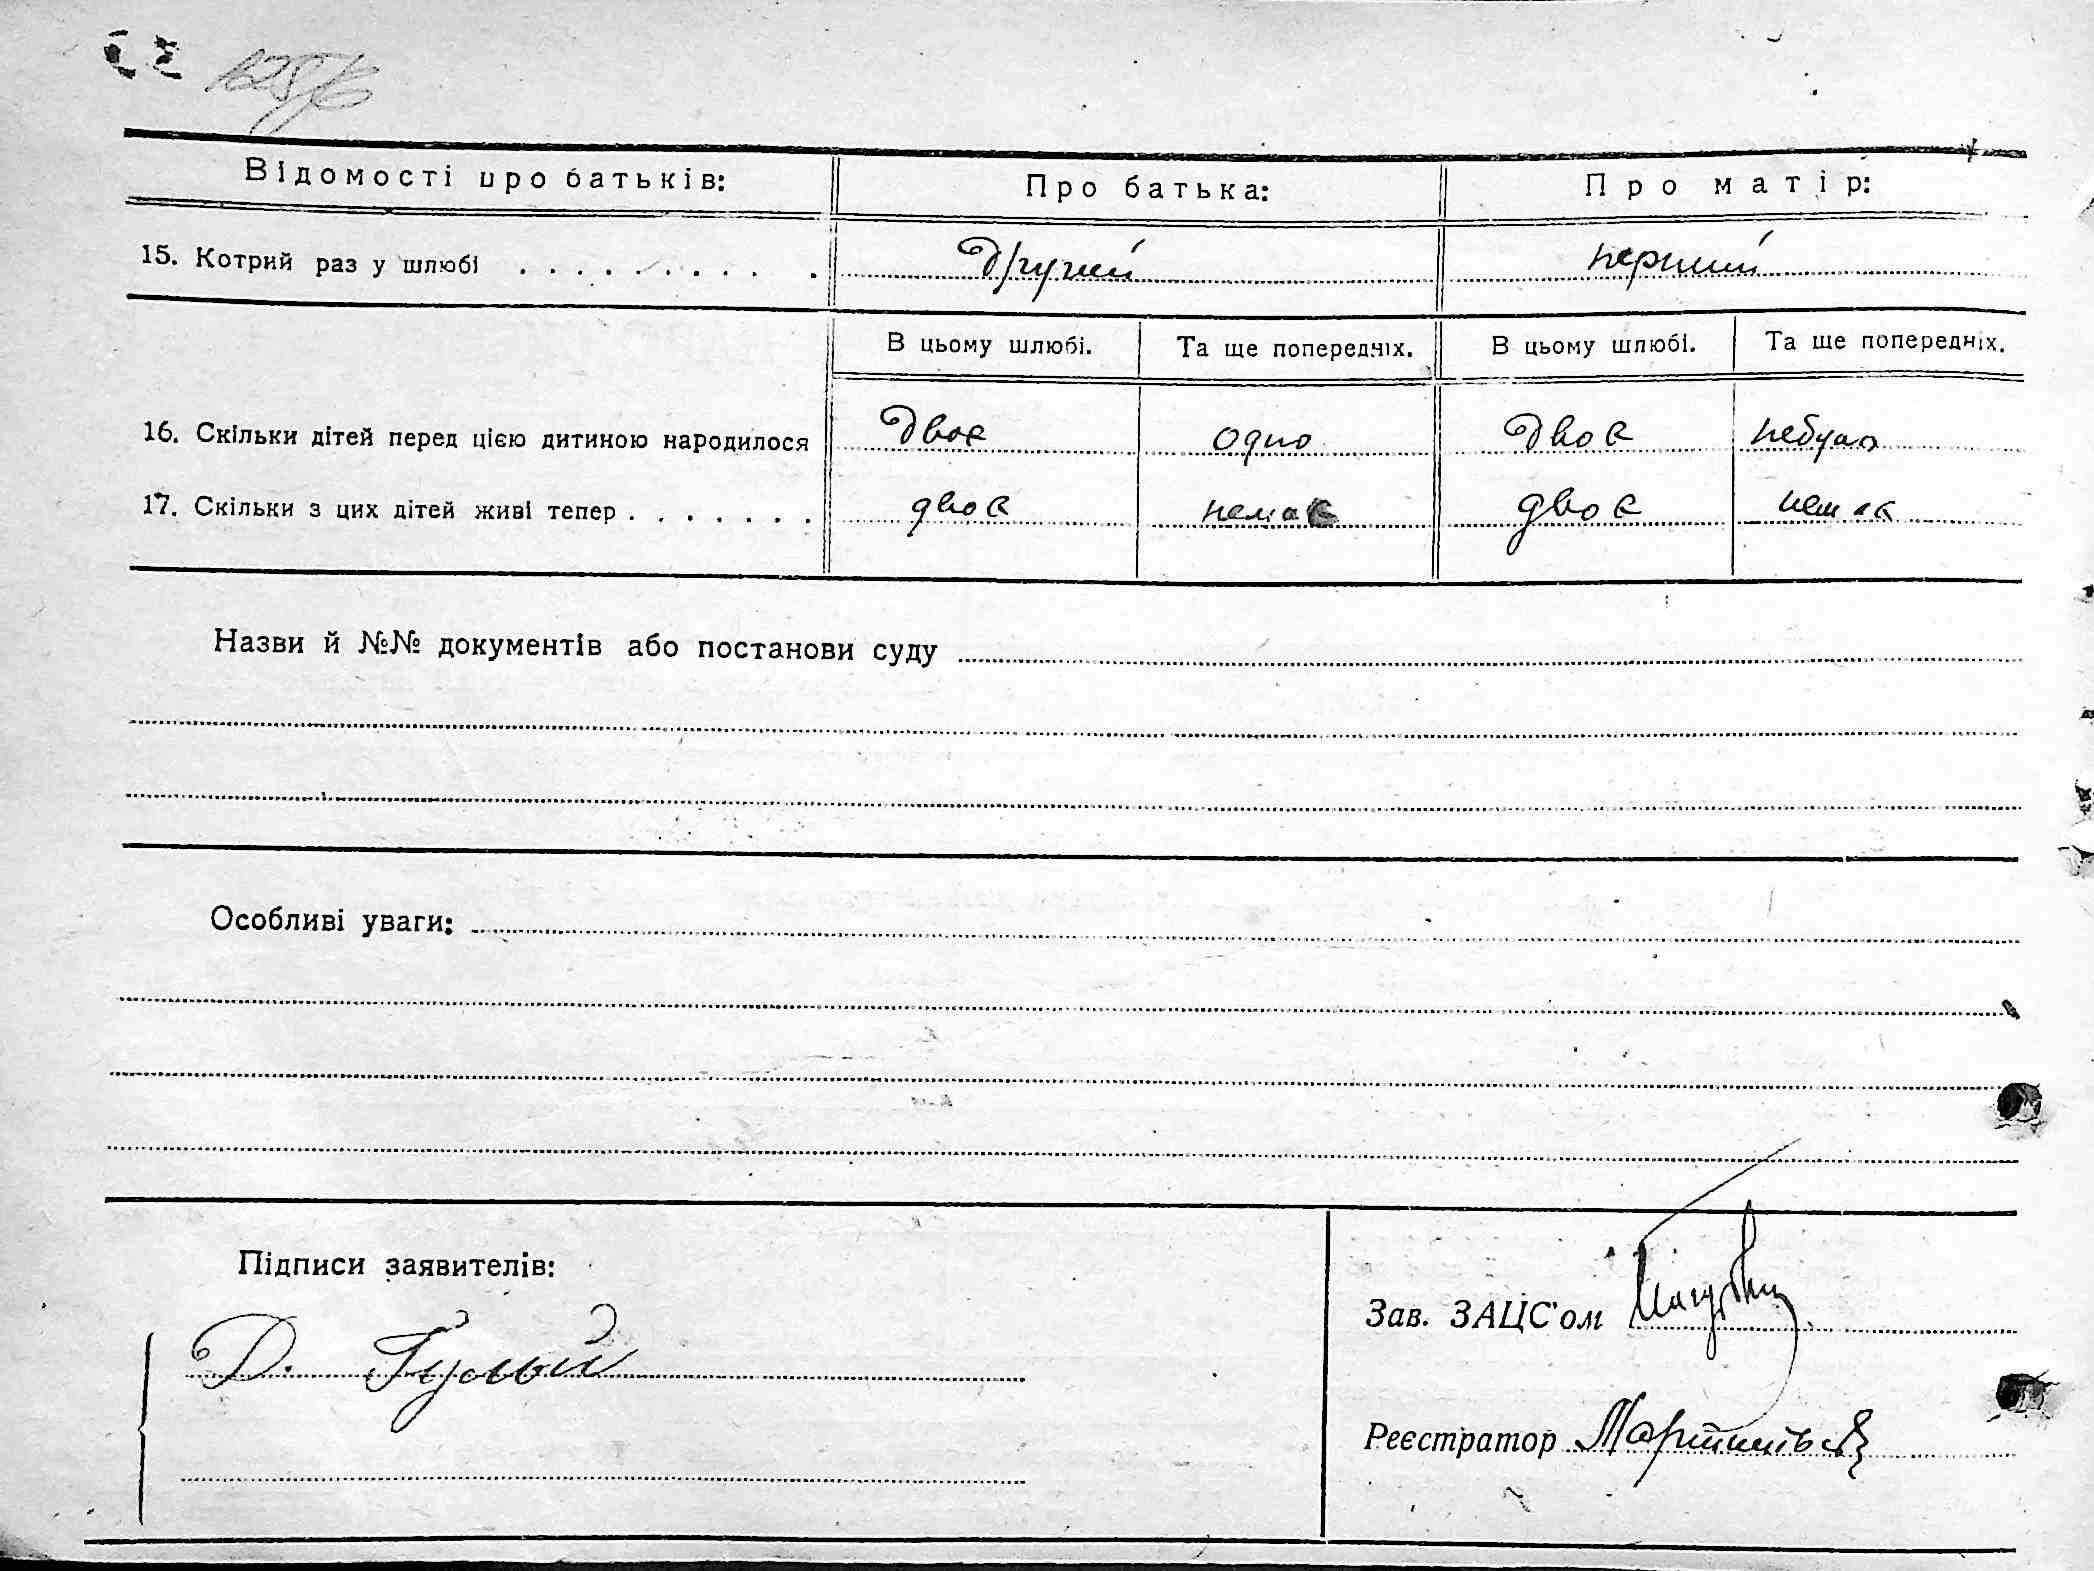 Відомості про батьків: Про батька: Про матір:
15. Котрий раз у шлюбі . . . . . . . . . . другий перший
В цьому шлюбі. Та ще попередніх. В цьому шлюбі. Та ще попередніх.
16. Скільки дітей перед цією дитиною народилося двоє одно двоє небуло
17. Скільки з цих дітей живі тепер . . . . . . . двоє немає двоє немає
Назви й №№ документів або постанови суду
Особливі уваги:
Підписи заявителів:
Зав. ЗАЦС'ом
Д. Гулый
Реєстратор